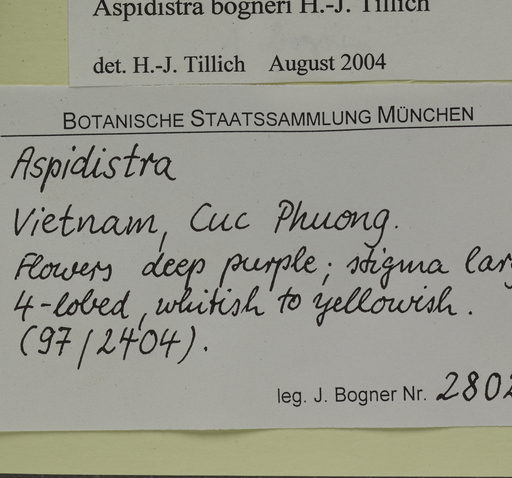 Aspidistra bogneri H.-J. Tillich
det. H.-J. Tillich August 2004
BOTANISCHE STAATSSAMMLUNG MÜNCHEN
Aspidistra
Vietnam, Cuc Phuong.
Flowers deep purple; stigma
4-lobed, whitish to yellowish.
(97/2404).
leg. J. Bogner Nr. 2802